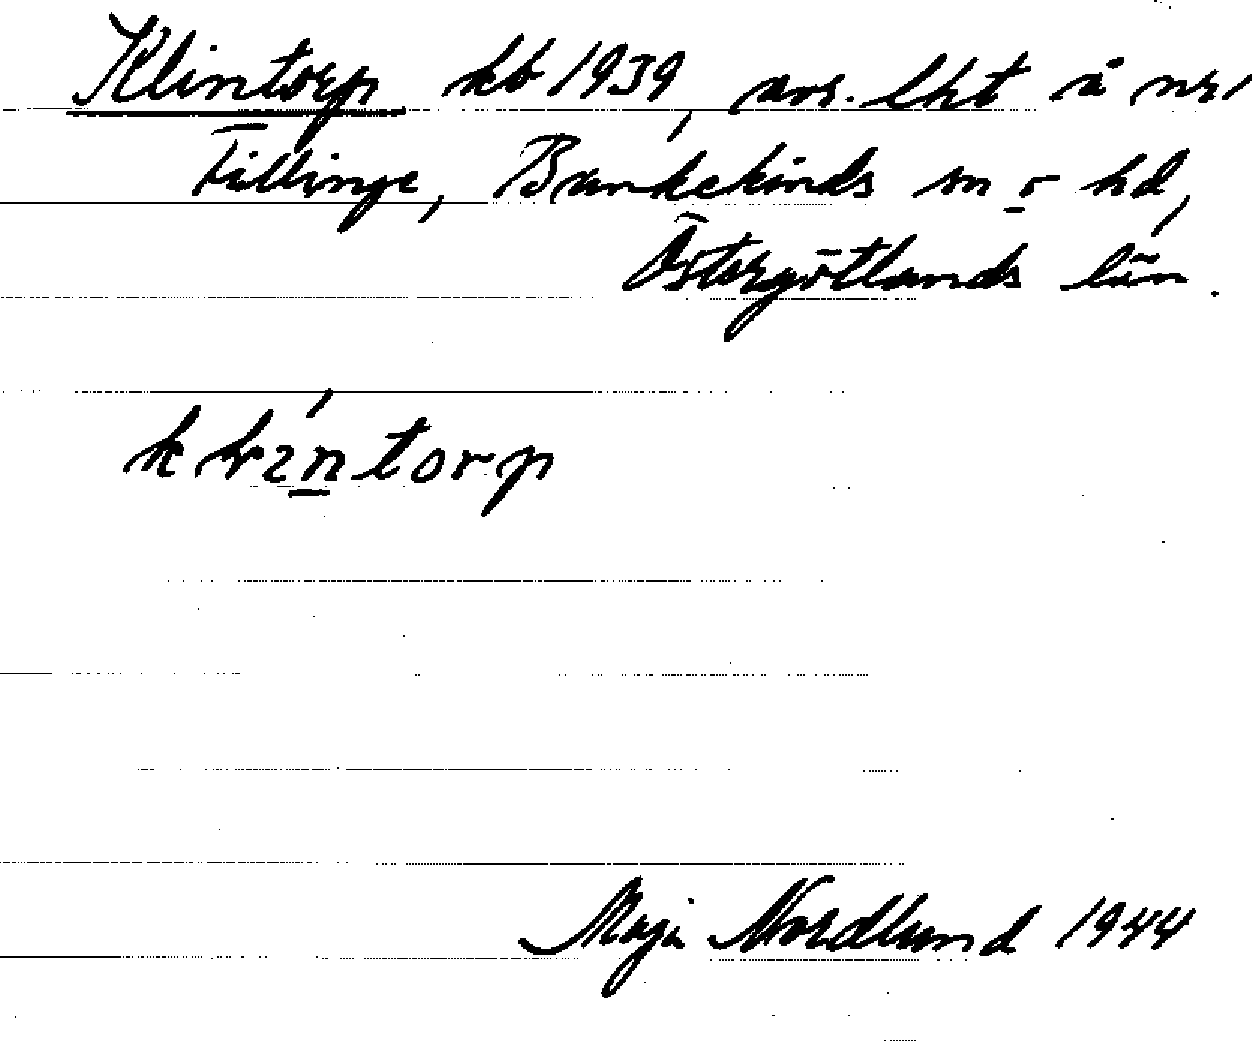 Klintorp kb 1939, avs. lht å nr 1
Fillinge, Bankekinds sn o hd,
Östergötlands län.
Maja Nordlund 1944